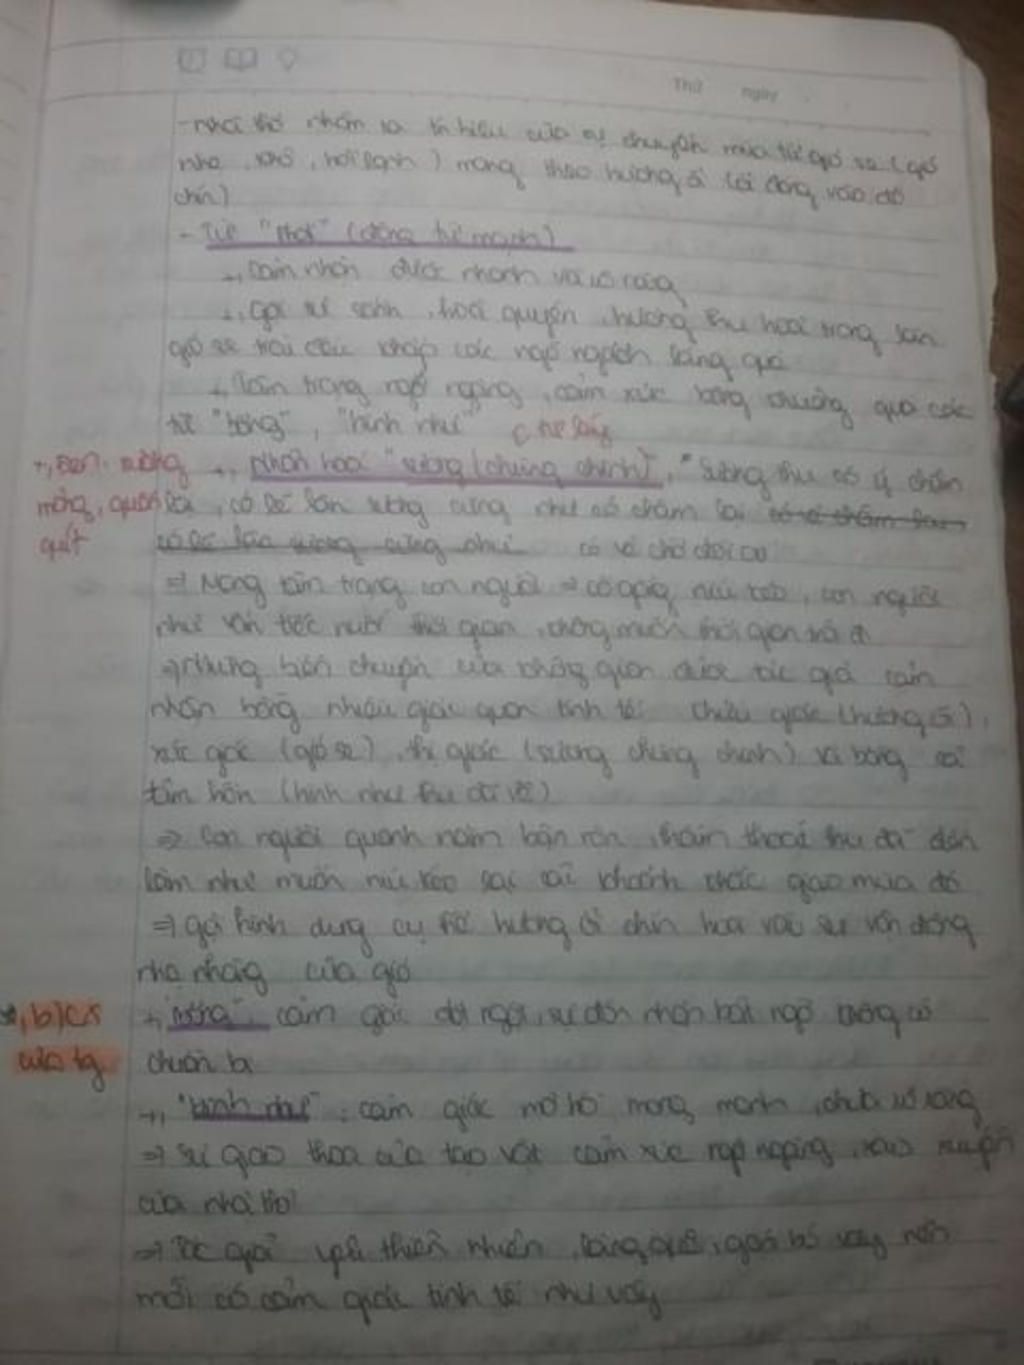 Thứ ngày
- nhà thơ nhận ra tín hiệu của sự chuyển mùa từ gió se (gió
nhẹ, khô, hơi lạnh) mang theo hương ổi (ổi đang vào độ
chín)
- Từ "Phả" (động từ mạnh)
+, cảm nhận được nhanh và rõ ràng
+, Gợi sự sánh, hoà quyện, hương thu hoà trong làn
gió se trải đều khắp các ngõ ngách làng quê
+, Tâm trạng ngỡ ngàng, cảm xúc bâng khuâng qua các
từ "bỗng", "hình như" từ láy
+, Nhân hoá "sương (chùng chình)", "Sương thu cố ý chậm
lại, có lẽ làn sương cũng như cố chậm lại
có vẻ chờ đợi
+, sương
mỏng, quấn
quít
=> Mang tâm trạng con người => cố níu kéo, con người
như vẫn tiếc nuối thời gian, không muốn thời gian trôi đi
=> Những biến chuyển của không gian được tác giả cảm
nhận bằng nhiều giác quan tinh tế: khứu giác (hương ổi),
xúc giác (gió se), thị giác (sương chùng chình) và bằng cả
tâm hồn (hình như thu đã về)
=> Con người quanh năm bận rộn, thấm thoát thu đã đến
làm như muốn níu kéo lại cái khoảnh khắc giao mùa đó
=> gợi hình dung cụ thể hương ổi chín hoà vào sự vận động
nhẹ nhàng của gió
*, b) CX
của tg
+, "Bỗng" cảm giác đột ngột, sự đón nhận bất ngờ không có
chuẩn bị
+, "hình như": cảm giác mơ hồ mong manh, chưa rõ ràng
=> Sự giao thoa của tạo vật cảm xúc ngỡ ngàng, xao xuyến
của nhà thơ
=> Tác giả yêu thiên nhiên, làng quê, gắn bó vậy nên
mới có cảm giác tinh tế như vậy